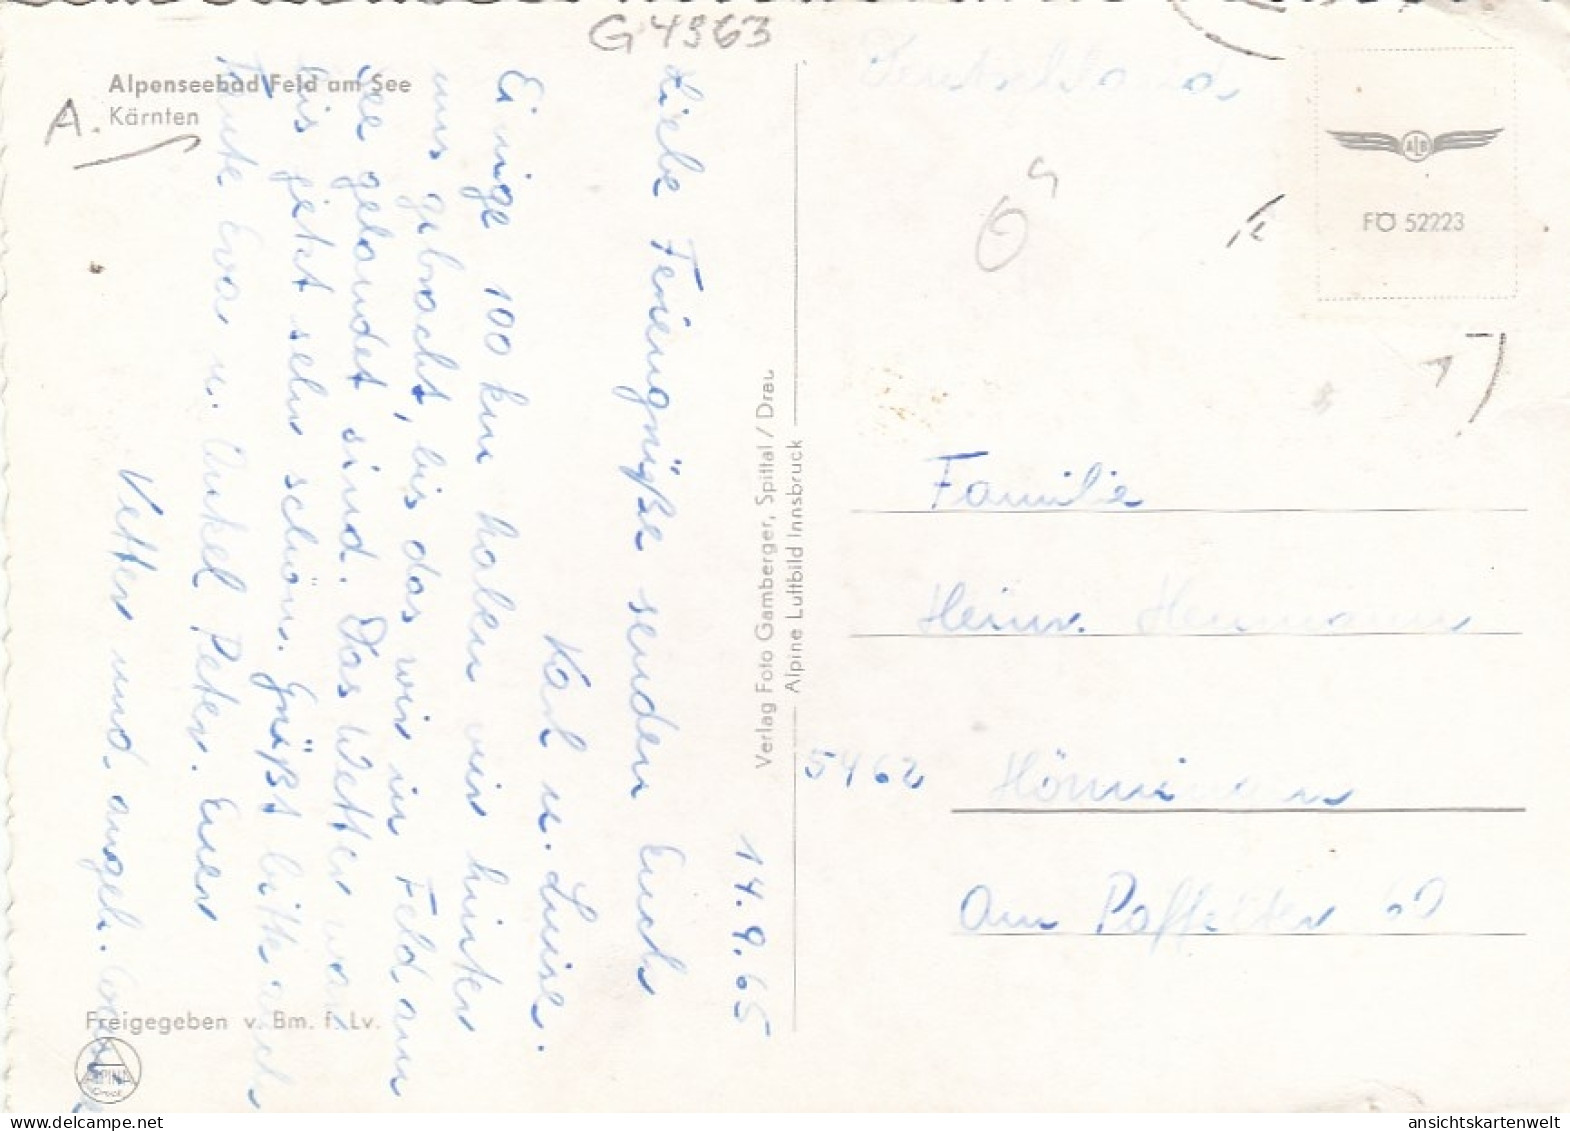 G 4963
Alpenseebad Feld am See
Kärnten
A.
14.9.65
Liebe Feriengrüße senden Euch
Karl u. Luise.
Einige 100 km haben wir hinter
uns gebracht, bis das wir in Feld am
See gelandet sind. Das Wetter war
bis jetzt sehr schön. Grüßt bitte auch
Tante Eva u. Onkel Peter. Euer
Vetter und angeh.
Freigegeben v. Bm. f. Lv.
ALPINA
Druck
Verlag Foto Gamberger, Spittal / Drau
Alpine Luftbild Innsbruck
Deutschland
ALB
FÖ 52223
Familie
Heinr.
5462
Am 69
ansichtskartenwelt